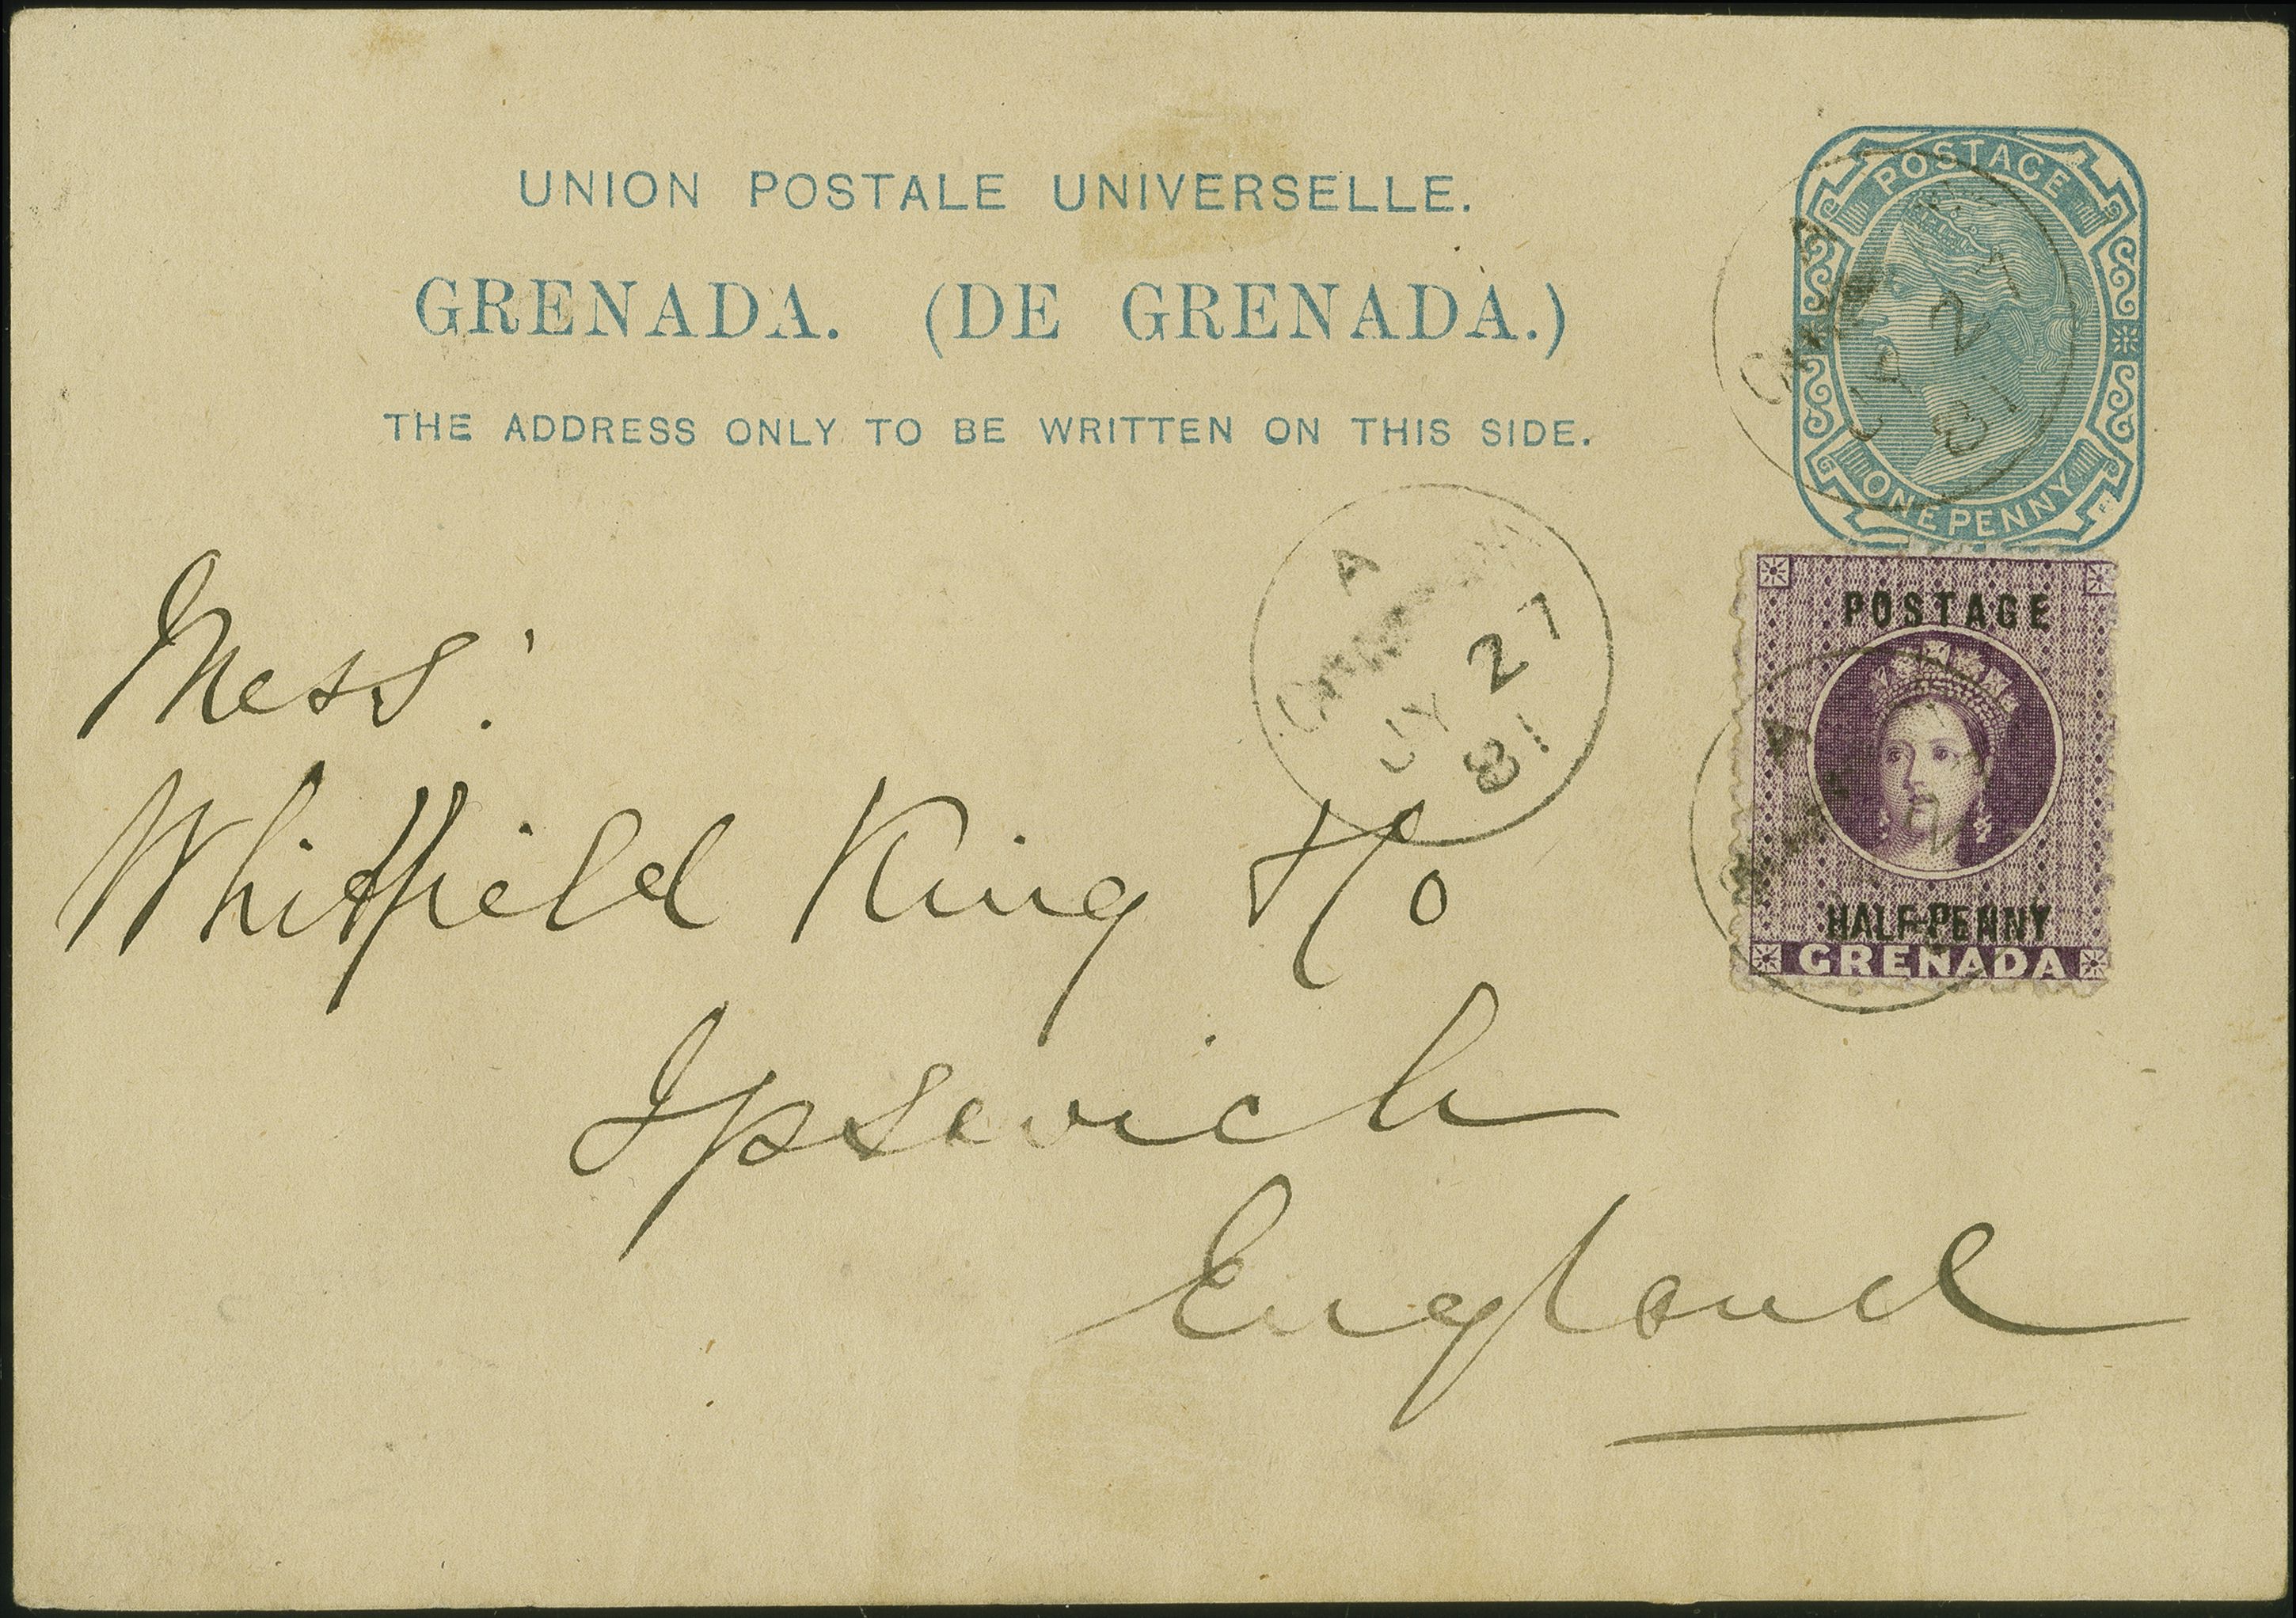 UNION POSTALE UNIVERSELLE.
GRENADA. (DE GRENADA.)
THE ADDRESS ONLY TO BE WRITTEN ON THIS SIDE.
POSTAGE
ONE PENNY
A
JY 27
81
POSTAGE
HALF-PENNY
GRENADA
A
A
JY 27
81
Mess:
Whitfield King & Co
Ipswich
England